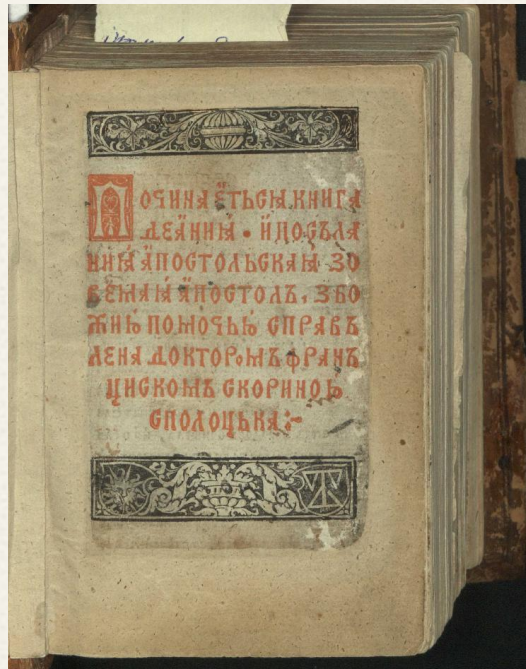 ПОЧИНАЕТЬСꙖ КНИГА
ДЕꙖНИꙖ • И ПОСЪЛА
НИꙖ АПОСТОЛЬСКАꙖ ЗО
ВЕМАꙖ АПОСТОЛЪ, ЗБО
ЖИЮ ПОМОЧЬЮ СПРАВЪ
ЛЕНА ДОКТОРОМЪ ФРАНЪ
ЦИСКОМЪ СКОРИНОЮ
СПОЛОЦЬКА:~